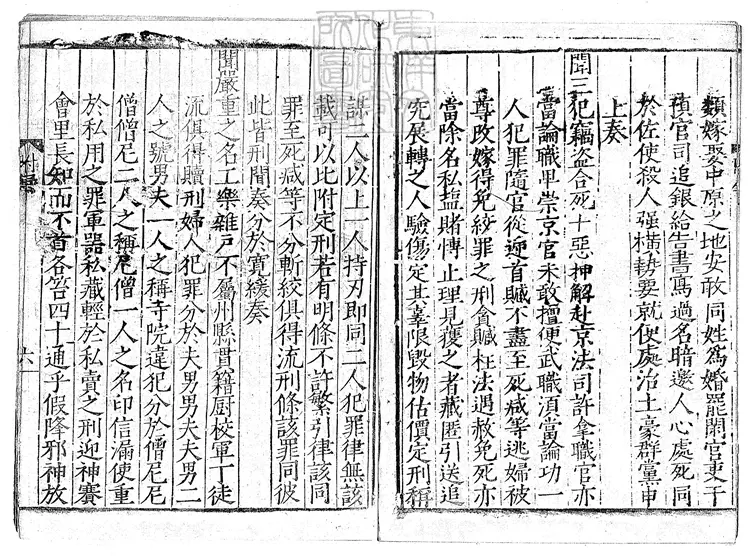 類嫁娶中原之地安敢同姓為婚罷閑官吏干
預官司追銀給告書寫過名暗邀人心處死同
於佐使殺人强橫勢要就便處治土豪群黨申
上奏
聞三犯竊盗合死十惡押解赴京法司許拿職官亦
當論職卑崇京官未敢擅便武職湏當論功一
人犯罪隨官從迎首贓不盡至死减等逃婦被
尊改嫁得免絞罪之刑貪贓枉法遇赦免死亦
當除名私塩賭愽止理見獲之者藏匿引送追
究展轉之人驗傷定其辜限毀物估價定刑稱
謀二人以上一人持刃即同二人犯罪律無該
載可以此附定刑若有明條不許繁引律該同
罪至死减等不分斬絞俱得流刑條該罪同彼
此皆刑聞奏分於寬緩奏
聞嚴重之名工樂雜戸不屬州縣貫籍厨校軍丁徒
流俱得贖刑婦人犯罪分於夫男男夫夫男二
人之號男夫一人之稱寺院違犯分於僧尼尼
僧僧尼二人之稱尼僧一人之名印信漏使重
於私用之罪軍器私藏輕於私賣之刑迎神賽
會里長知而不首各笞四十通乎假降邪神放
六